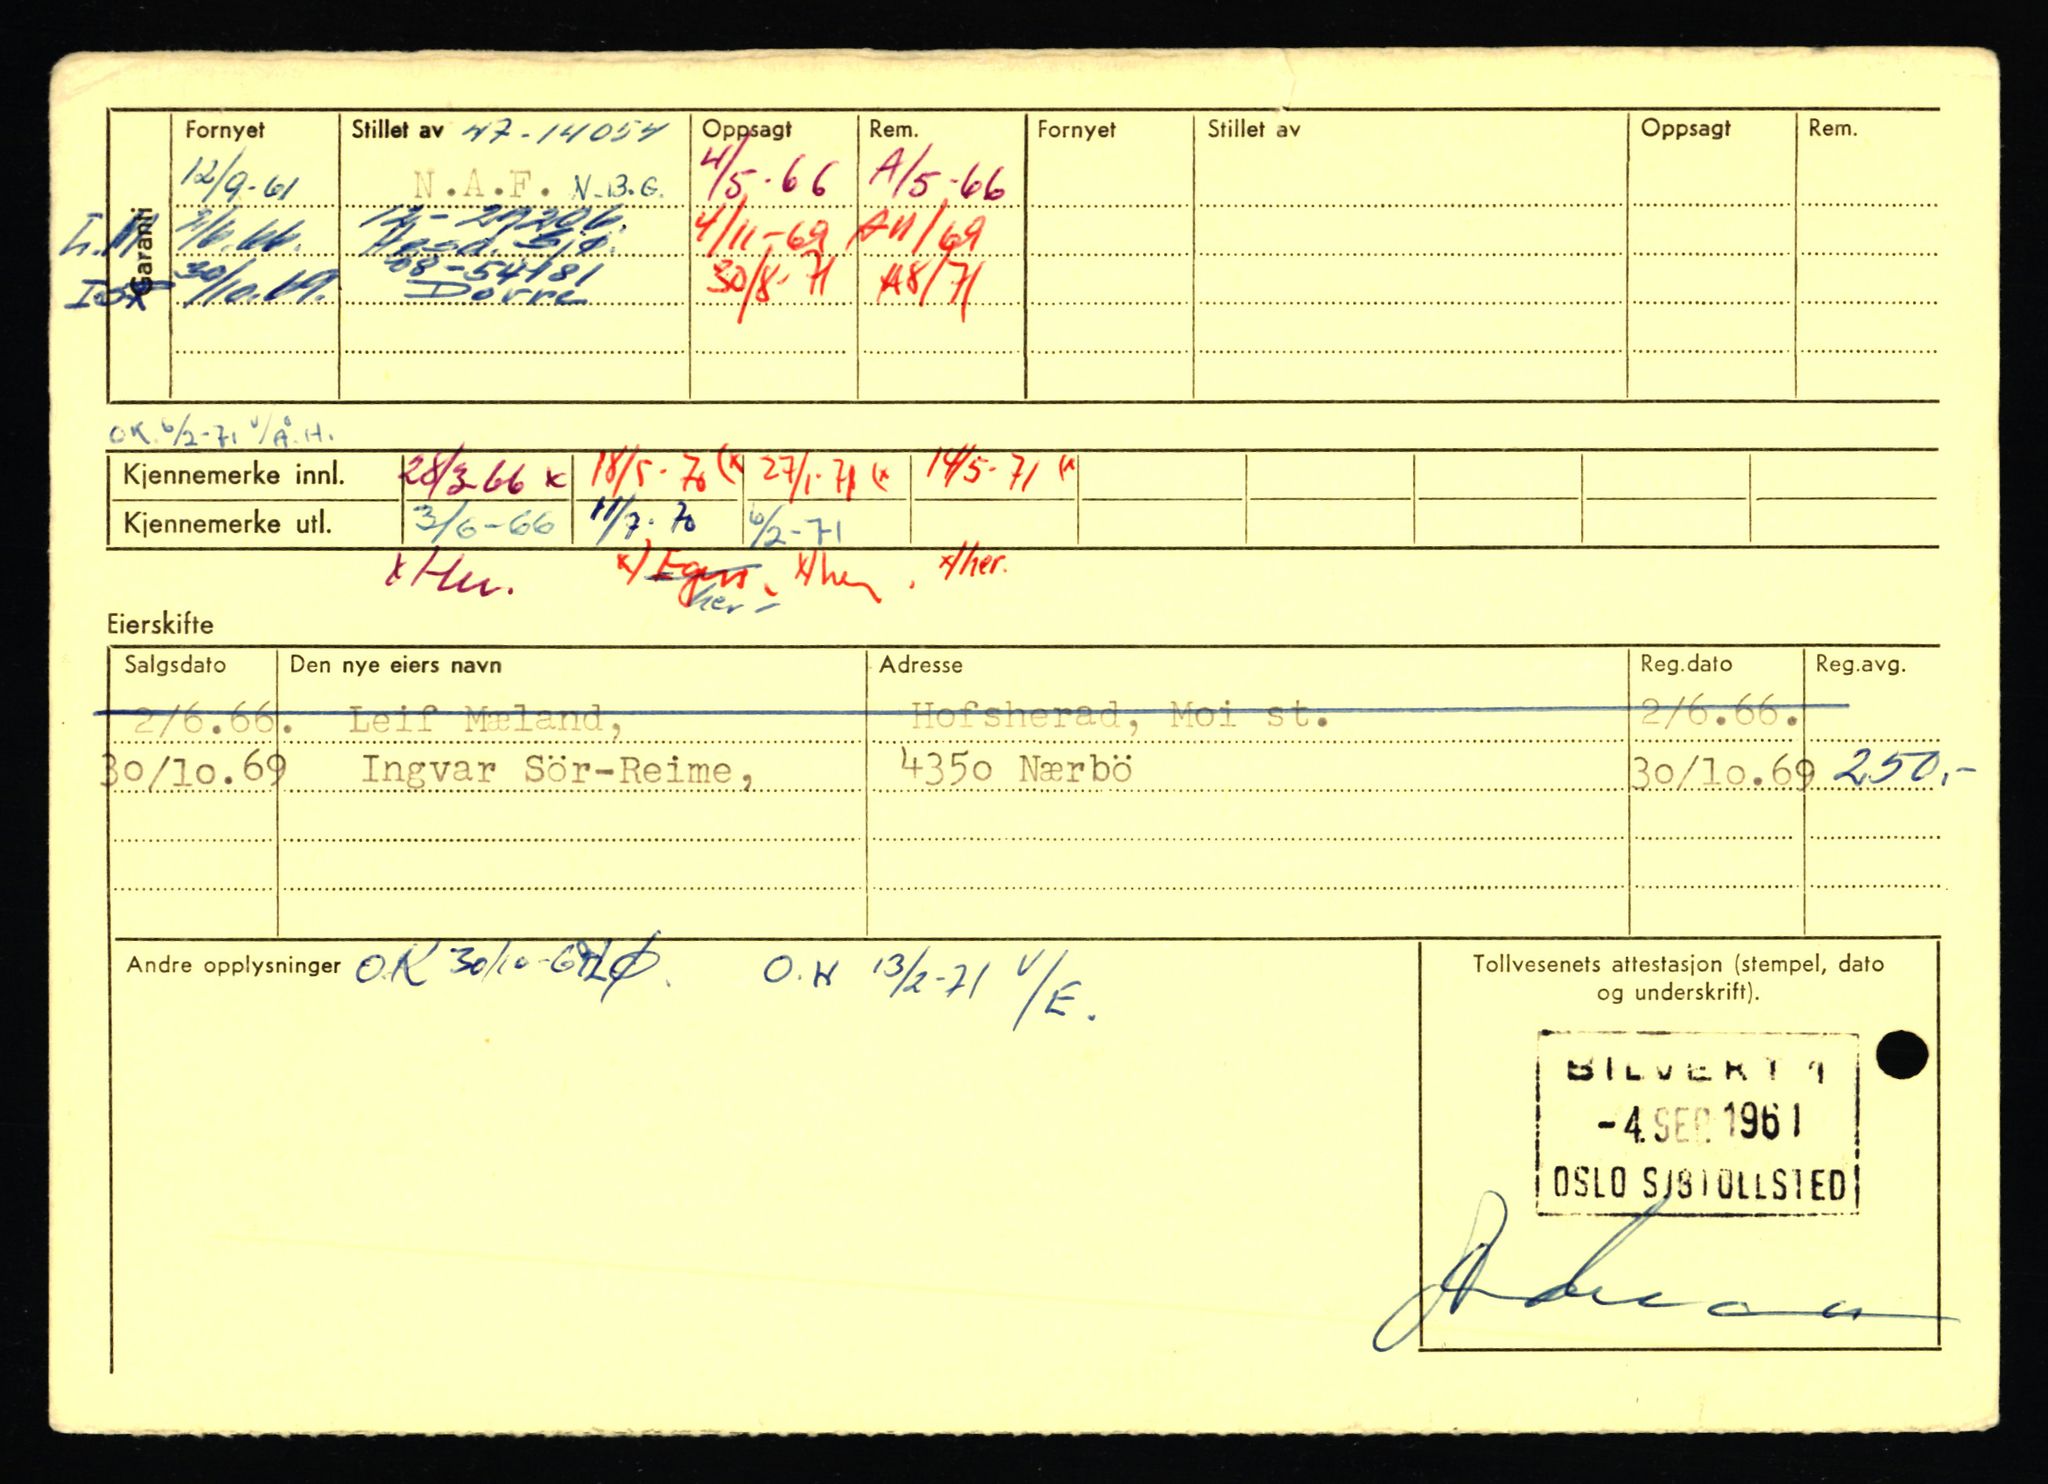 Garanti
Fornyet Stillet av 47-14054 Oppsagt Rem. Fornyet Stillet av Oppsagt Rem.
12/9-61 N.A.F. N.B.G. 4/5-66 A/5-66
2/6.66. 12-29206. 4/11-69 A11/69
30/10.69. 08-54181 30/8-71 A8/71
Dovre
OK. 6/2-71 V/Å.H.
Kjennemerke innl. 28/3-66 x 18/5-70 (x 27/1-71 (x 14/5-71 (x
Kjennemerke utl. 3/6-66 11/7-70 6/2-71
x) x/her. x/her.
her
Eierskifte
Salgsdato Den nye eiers navn Adresse Reg.dato Reg.avg.
2/6.66. Leif Mæland, Hofsherad, Moi st. 2/6.66.
30/10.69 Ingvar Sör-Reime, 4350 Nærbö 30/10.69 250,-
Andre opplysninger O.K 30/10-69 O.K 13/2-71 V/E.
Tollvesenets attestasjon (stempel, dato
og underskrift).
-4. SEP. 1961